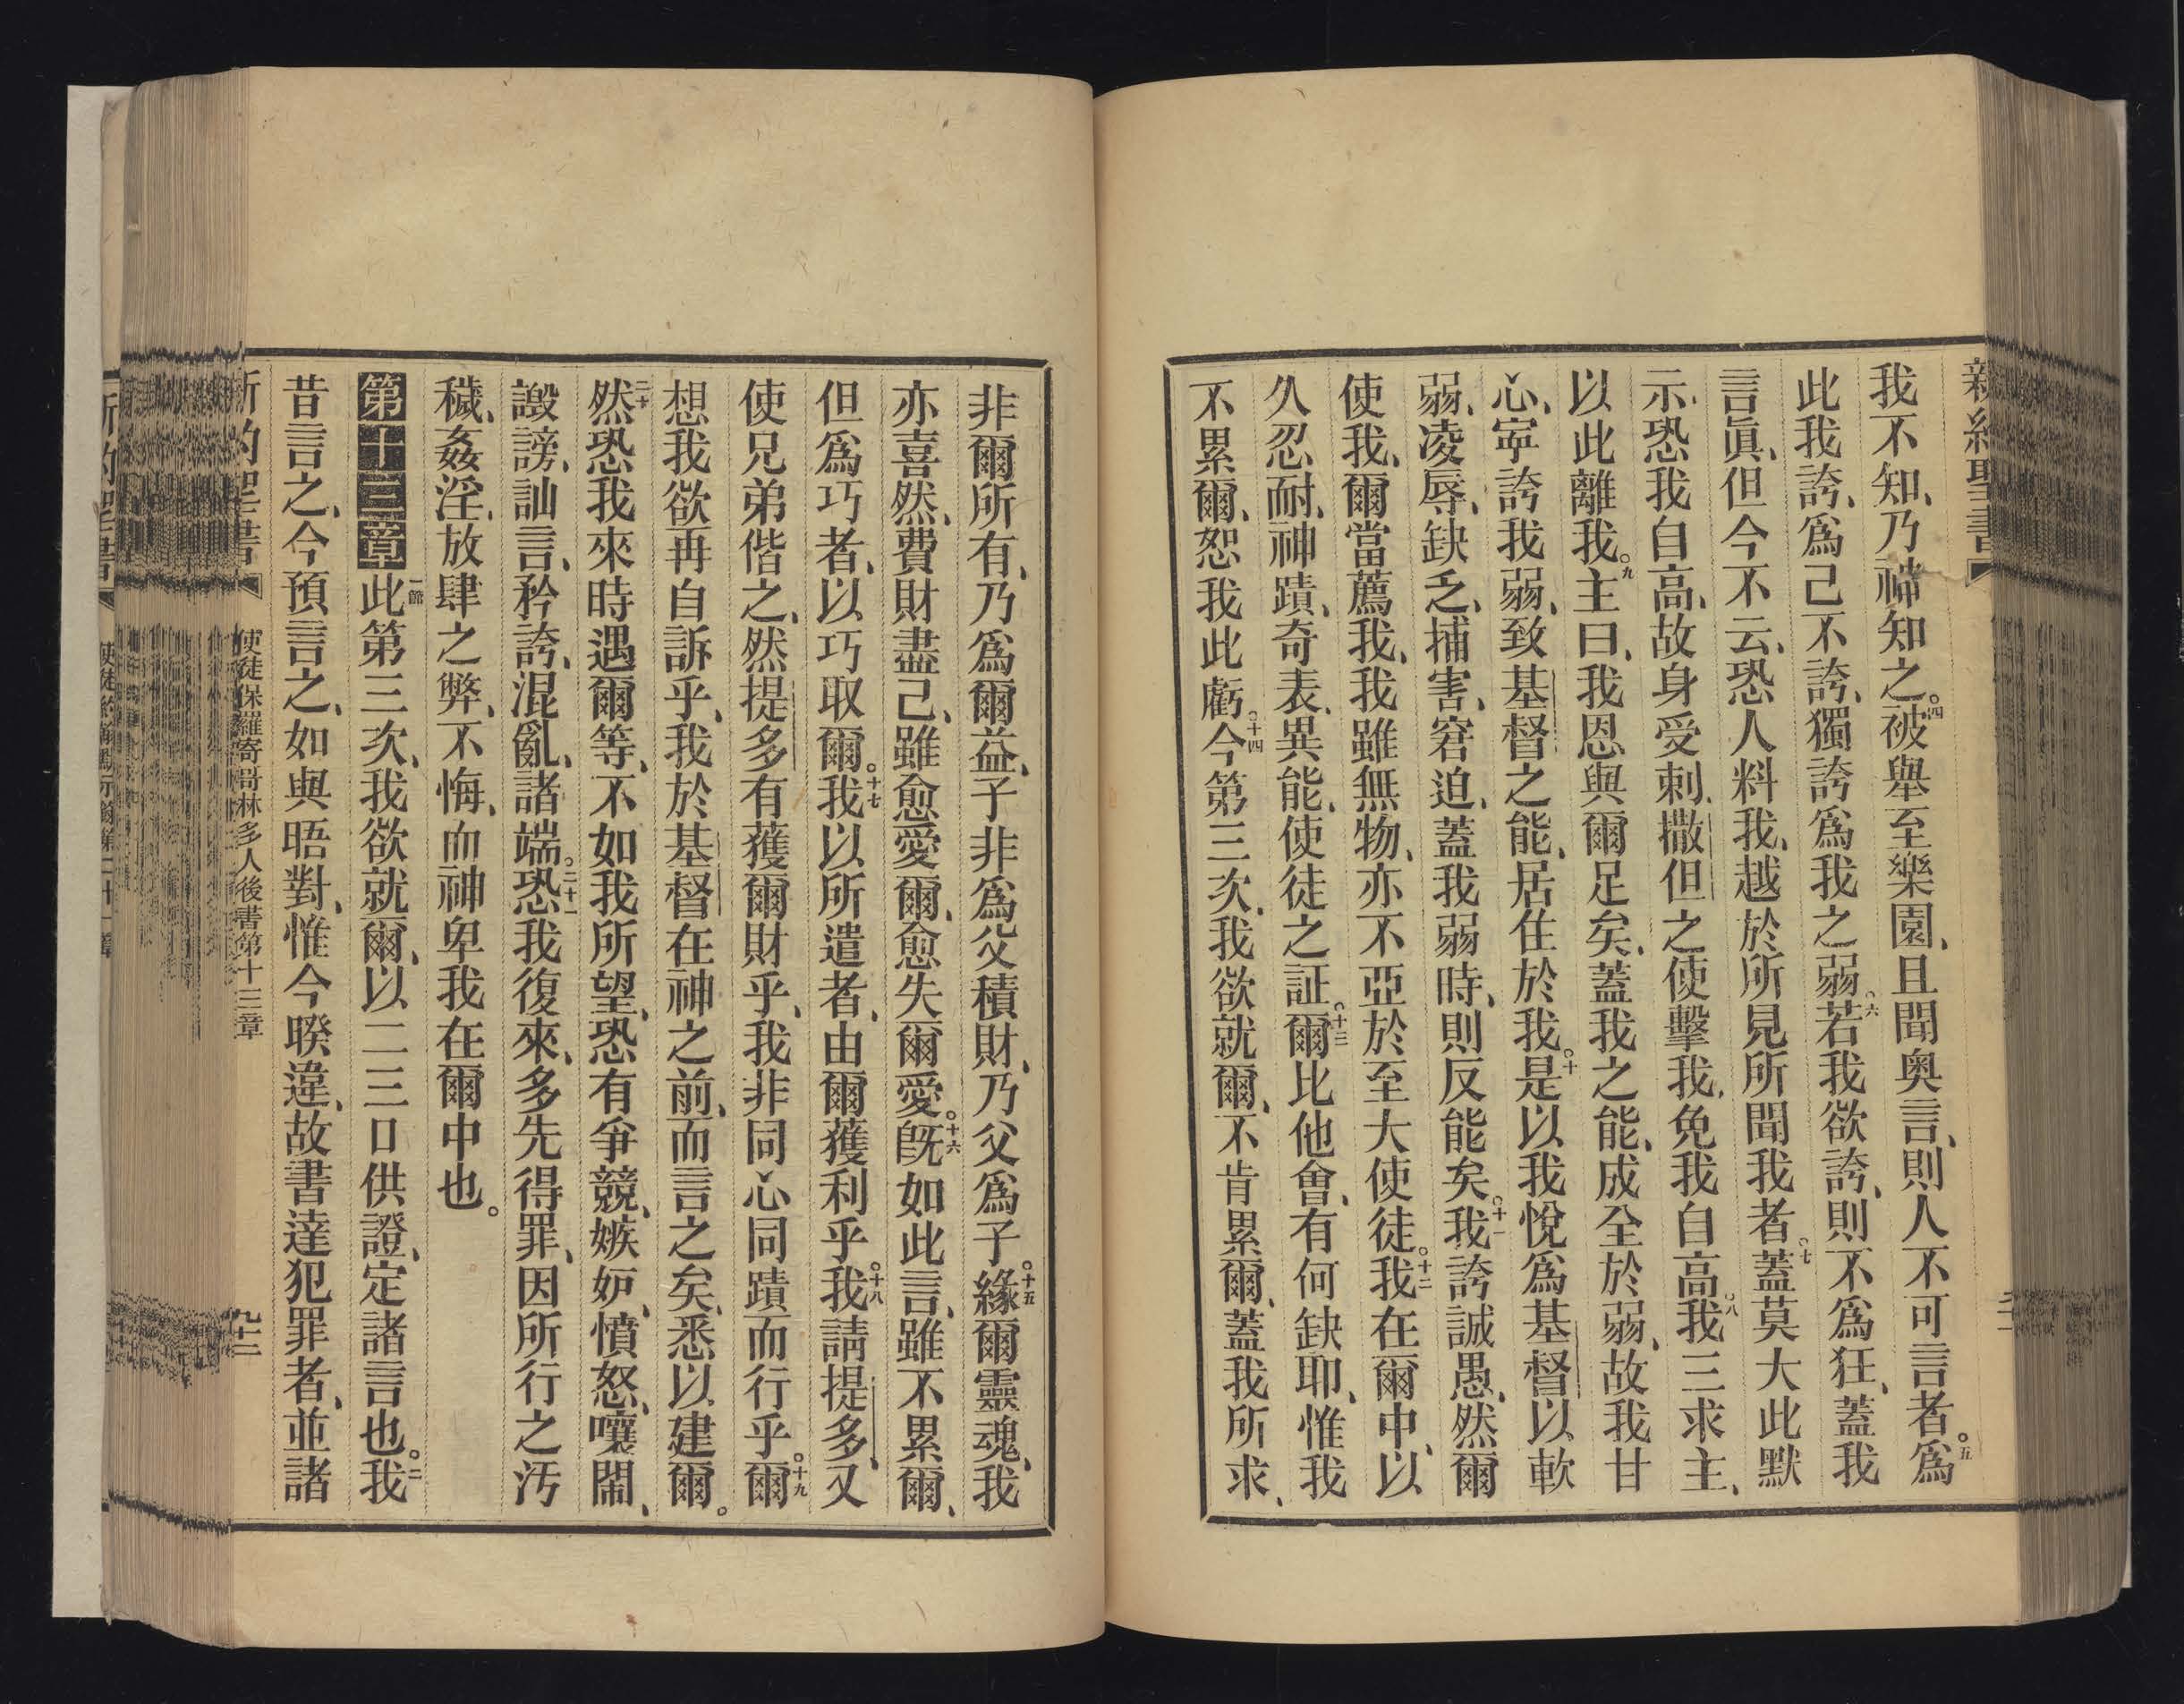 我不知、乃神知之。四被舉至樂園、且聞奧言、則人不可言者。五爲
此我誇、爲己不誇、獨誇爲我之弱。六若我欲誇、則不爲狂、蓋我
言眞、但今不云、恐人料我、越於所見所聞我者。七蓋莫大此默
示、恐我自高、故身受刺、撒但之使擊我、免我自高。八我三求主、
以此離我。九主曰、我恩與爾足矣、蓋我之能、成全於弱、故我甘
心、寜誇我弱、致基督之能、居住於我。十是以我悅爲基督以軟
弱、凌辱、缺乏、捕害、窘迫、蓋我弱時、則反能矣。十一我誇誠愚、然爾
使我、爾當薦我、我雖無物、亦不亞於至大使徒。十二我在爾中、以
久忍耐、神蹟、奇表、異能、使徒之証。十三爾比他會、有何缺耶、惟我
不累爾、恕我此虧。十四今第三次、我欲就爾、不肯累爾、蓋我所求、
非爾所有、乃爲爾益、子非爲父積財、乃父爲子。十五緣爾靈魂、我
亦喜然、費財盡己、雖愈愛爾、愈失爾愛。十六旣如此言、雖不累爾、
但爲巧者、以巧取爾。十七我以所遣者、由爾獲利乎。十八我請提多、又
使兄弟偕之、然提多有獲爾財乎、我非同心同蹟而行乎。十九爾
想我欲再自訴乎、我於基督在神之前、而言之矣、悉以建爾。
二十然恐我來時遇爾等、不如我所望、恐有爭競、嫉妒、憤怒、嚷鬧、
譭謗、訕言、矜誇、混亂、諸端。二十一恐我復來、多先得罪、因所行之汚
穢、姦淫、放肆之弊、不悔、而神卑我在爾中也。
第十三章 一節此第三次、我欲就爾、以二三口供證、定諸言也。二我
昔言之、今預言之、如與晤對、惟今暌違、故書達犯罪者、並諸
新約聖書 使徒保羅寄哥林多人後書第十三章 九十二